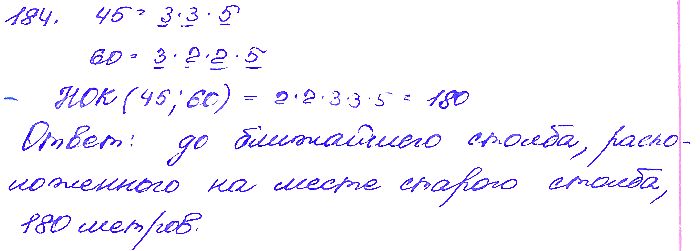 184. 45 = 3·3·5
60 = 3·2·2·5
- НОК (45; 60) = 2·2·3·3·5 = 180
Ответ: до ближайшего столба, распо-
ложенного на месте старого столба,
180 метров.